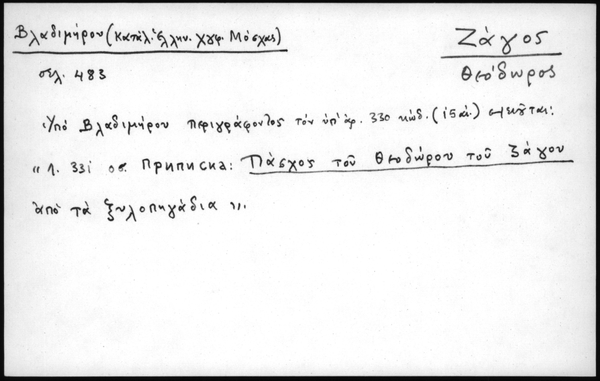 Βλαδιμήρου (Κατάλ. Ἑλλην. Χγφ. Μόσχας)
Ζάγος
Θεόδωρος
σελ. 483
Ὑπὸ Βλαδιμήρου περιγράφοντος τὸν ὑπ' ἀρ. 330 κώδ. (ις αἰ.) σημειοῦται:
"л. 331 об. приписка: Πάσχος τοῦ Θεοδώρου τοῦ Ζάγου
ἀπὸ τὰ ξυλοπηγάδια".